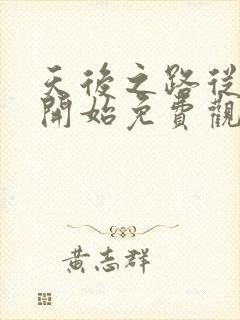 天後之路從
開始免費觀
黃志群